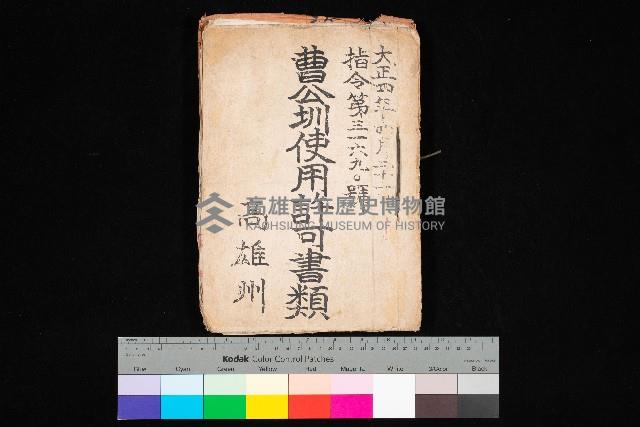 大正四年十一月三十一
指令第三一六九〇號
曹公圳使用許可書類
高雄州
高雄市立歷史博物館
KAOHSIUNG MUSEUM OF HISTORY
Kodak Color Control Patches
Blue Cyan Green Yellow Red Magenta White 3/Color Black